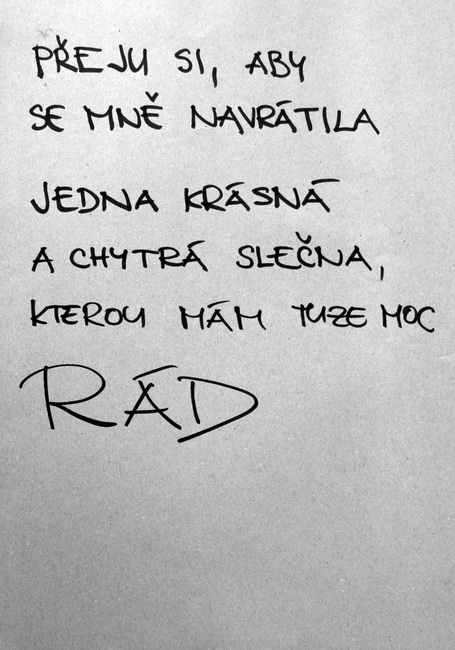 PŘEJU SI, ABY
SE MNĚ NAVRÁTILA
JEDNA KRÁSNÁ
A CHYTRÁ SLEČNA,
KTEROU MÁM TUZE MOC
RÁD